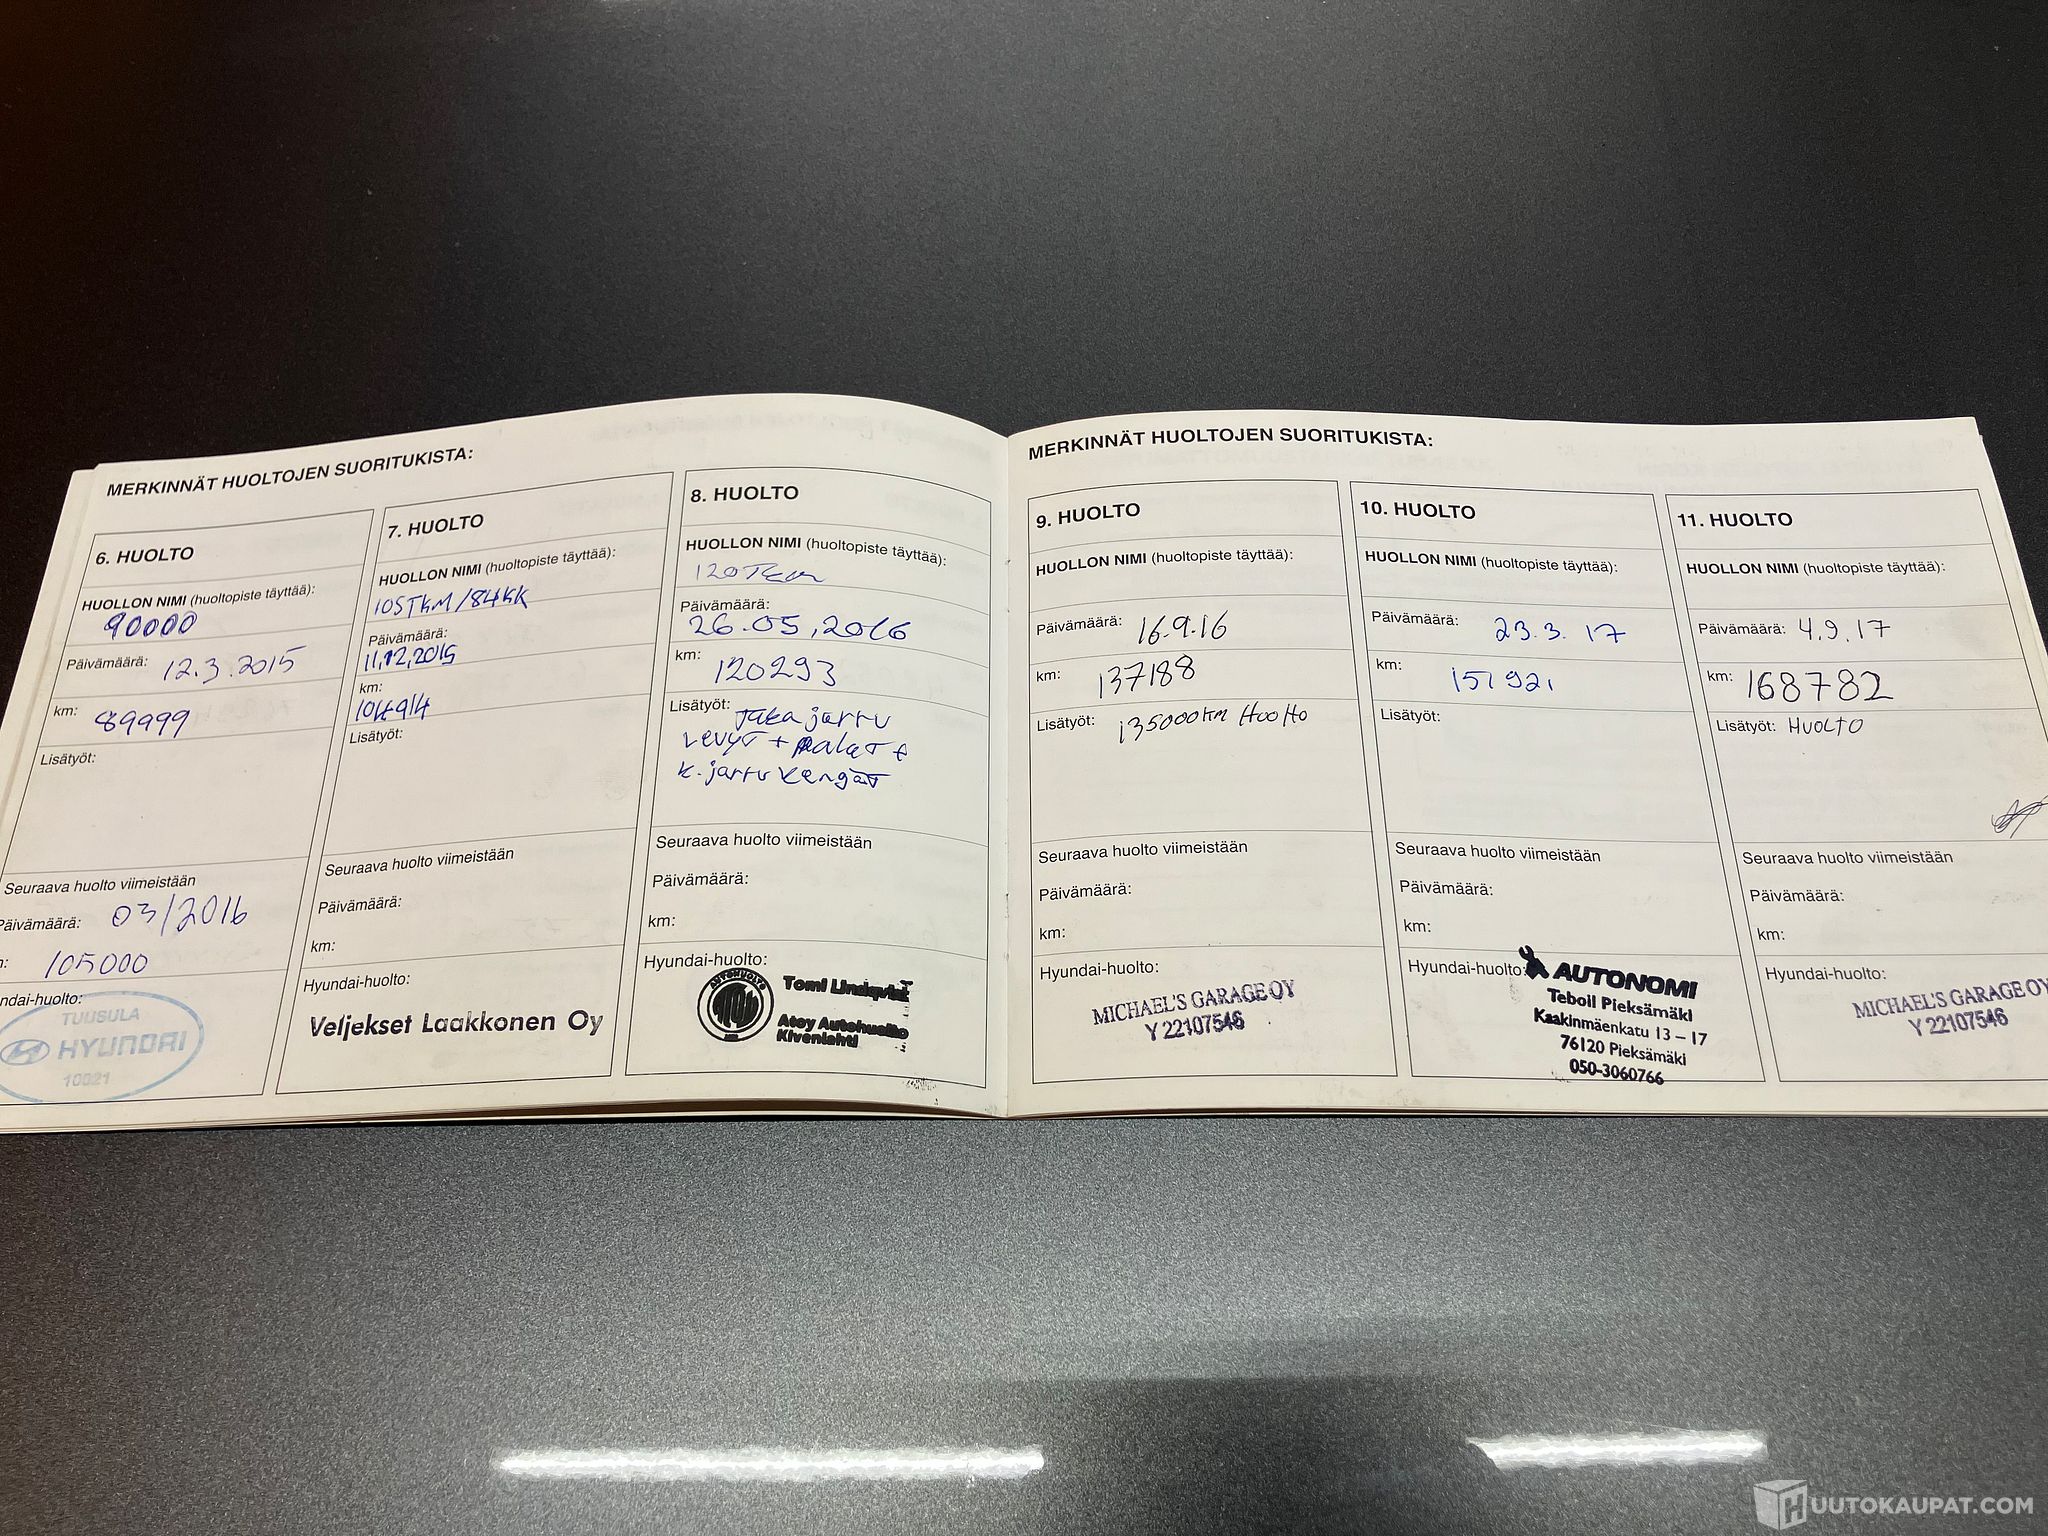 MERKINNÄT HUOLTOJEN SUORITUKISTA:
6. HUOLTO
HUOLLON NIMI (huoltopiste täyttää):
90000
Päivämäärä: 12.3.2015
km: 89999
Lisätyöt:
Seuraava huolto viimeistään
Päivämäärä: 03/2016
105000
ndai-huolto:
TUUSULA
HYUNDAI
10021
7. HUOLTO
HUOLLON NIMI (huoltopiste täyttää):
105TKM/84KK
Päivämäärä:
11.12.2015
km:
104914
Lisätyöt:
Seuraava huolto viimeistään
Päivämäärä:
km:
Hyundai-huolto:
Veljekset Laakkonen Oy
8. HUOLTO
HUOLLON NIMI (huoltopiste täyttää):
120Tkm
Päivämäärä:
26.05.2016
km: 120293
Lisätyöt: Taka jarru
levyt + palat +
k.jarru kengät
Seuraava huolto viimeistään
Päivämäärä:
km:
Hyundai-huolto:
AUTOHUOLTO
Tomi Lindqvist
Atoy Autohuolto
Kivenlahti
MERKINNÄT HUOLTOJEN SUORITUKISTA:
9. HUOLTO
HUOLLON NIMI (huoltopiste täyttää):
Päivämäärä: 16.9.16
km: 137188
Lisätyöt: 135000km Huolto
Seuraava huolto viimeistään
Päivämäärä:
km:
Hyundai-huolto:
MICHAEL'S GARAGE OY
Y 22107546
10. HUOLTO
HUOLLON NIMI (huoltopiste täyttää):
Päivämäärä: 23.3.17
km: 151921
Lisätyöt:
Seuraava huolto viimeistään
Päivämäärä:
km:
Hyundai-huolto:
AUTONOMI
Teboil Pieksämäki
Kaakinmäenkatu 13 – 17
76120 Pieksämäki
050-3060766
11. HUOLTO
HUOLLON NIMI (huoltopiste täyttää):
Päivämäärä: 4.9.17
km: 168782
Lisätyöt: HUOLTO
Seuraava huolto viimeistään
Päivämäärä:
km:
Hyundai-huolto:
MICHAEL'S GARAGE OY
Y 22107546
HUUTOKAUPAT.COM